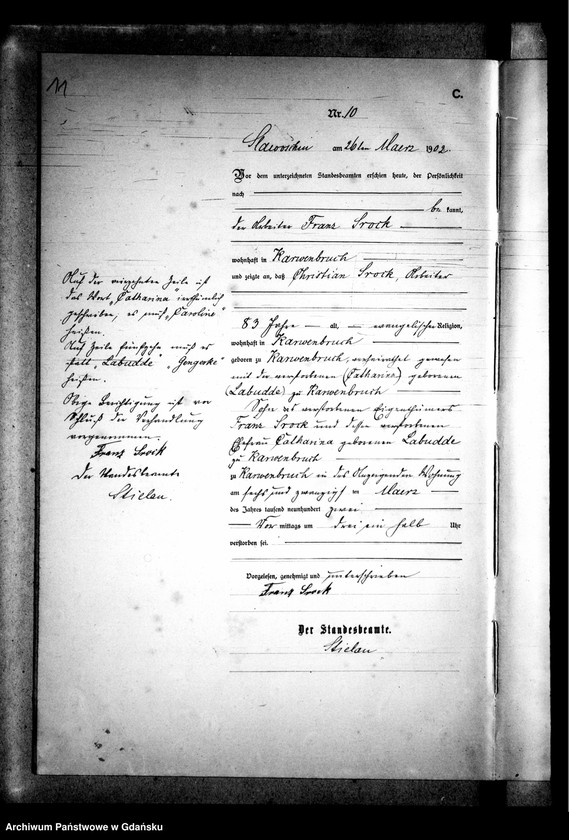 11
C.
Nr. 10
am 26ten Maerz 1902.
Vor dem unterzeichneten Standesbeamten erschien heute, der Persönlichkeit
nach
be kannt,
der Arbeiter Franz Srock
wohnhaft in Karwenbruch
und zeigte an, daß Christian Srock, Arbeiter
83 Jahre alt, evangelischer Religion,
wohnhaft in Karwenbruch
geboren zu Karwenbruch, verheirathet gewesen
mit der verstorbenen (Catharina) geborenen
(Labudde) zu Karwenbruch
Sohn des verstorbenen Eigenthümers
Franz Srock und dessen verstorbenen
Ehefrau Catharina geborenen Labudde
zu Karwenbruch
zu Karwenbruch in des Anzeigenden Wohnung
am sechs und zwanzigsten Maerz
des Jahres tausend neunhundert zwei
Vor mittags um drei ein halb Uhr
verstorben sei.
Vorgelesen, genehmigt und unterschrieben
Franz Srock
Der Standesbeamte.
Stielau
Auf der vierzehnten Zeile ist
das Wort „Catharina" irrthümlich
geschrieben, es muß „Caroline"
heißen.
Auf Zeile fünfzehn muß es
statt „Labudde"
heißen.
Obige Berichtigung ist vor
Schluß der Verhandlung
vorgenommen.
Franz Srock
Der Standesbeamte
Stielau.
Archiwum Państwowe w Gdańsku